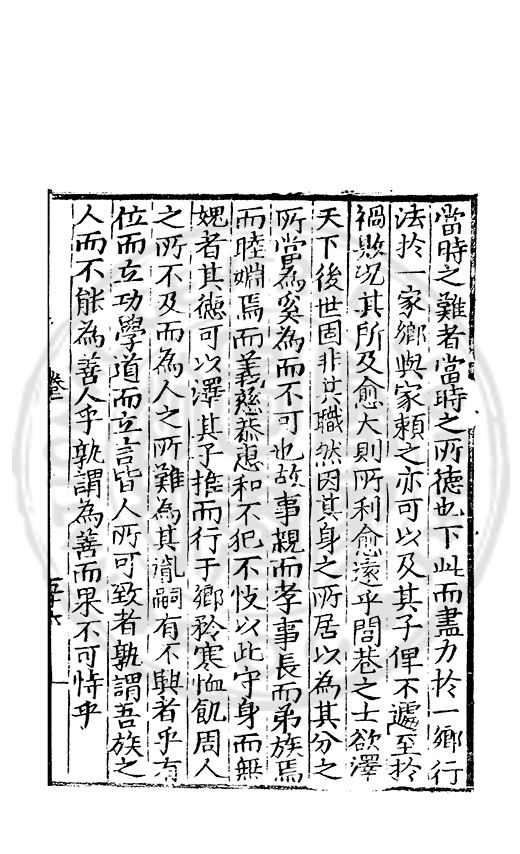 當時之難者當時之所德也下此而盡力於一鄉行
法於一家鄉與家賴之亦可以及其子俾不遽至於
禍敗况其所及愈大則所利愈遠乎閭巷之士欲澤
天下後世固非其職然因其身之所居以為其分之
所當為奚為而不可也故事親而孝事長而弟族焉
而睦婣焉而義慈恭惠和不犯不忮以此守身而無
媿者其德可以澤其子推而行于鄉矜寒恤飢周人
之所不及而為人之所難為其胤嗣有不興者乎有
位而立功學道而立言皆人所可致者孰謂吾族之
人而不能為善人乎孰謂為善而果不可恃乎
卷